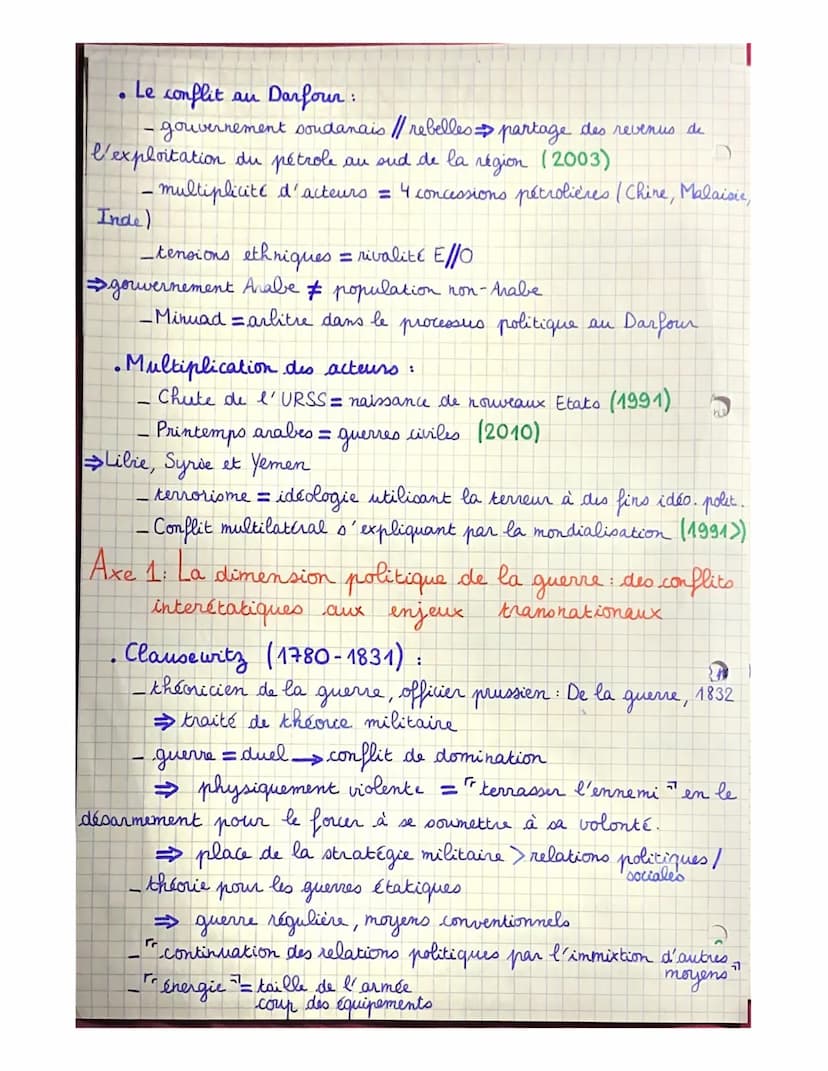 . Le conflit au Darfour :
- gouvernement soudanais // rebelles ⇒ partage des revenus de
l'exploitation du pétrole au sud de la région (2003)
- multiplicité d'acteurs = 4 concessions pétrolières (Chine, Malaisie,
Inde)
- tensions ethniques = rivalité E//O
⇒ gouvernement Arabe ≠ population non-Arabe
- Minuad = arbitre dans le processus politique au Darfour
. Multiplication des acteurs :
- Chute de l'URSS = naissance de nouveaux Etats (1991)
- Printemps arabes = guerres civiles (2010)
⇒ Libie, Syrie et Yemen
- terrorisme = idéologie utilisant la terreur à des fins idéo. polit.
- Conflit multilatéral s'expliquant par la mondialisation (1991>)
Axe 1: La dimension politique de la guerre : des conflits
interétatiques aux enjeux transnationaux
. Clausewitz (1780-1831) :
- théoricien de la guerre, officier prussien : De la guerre, 1832
⇒ traité de théorie militaire
- guerre = duel → conflit de domination
⇒ physiquement violente = "terrasser l'ennemi" en le
désarmement pour le forcer à se soumettre à sa volonté.
⇒ place de la stratégie militaire > relations politiques /
sociales
- théorie pour les guerres étatiques
⇒ guerre régulière, moyens conventionnels
- "continuation des relations politiques par l'immixtion d'autres
moyens"
- "énergie" = taille de l'armée
coup des équipements